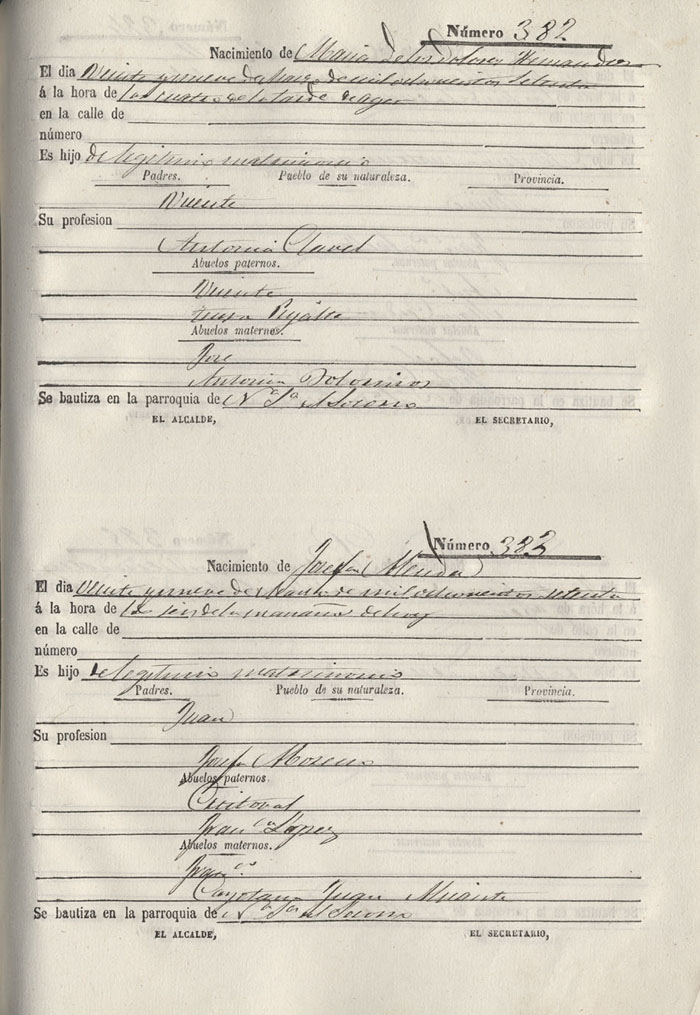 Número 382
Nacimiento de María de los Dolores Hernandez
El dia Veinte y nueve de Marzo de mil ochocientos setenta
á la hora de las cuatro de la tarde de ayer
en la calle de
número
Es hijo de legitimo matrimonio
Padres. Pueblo de su naturaleza. Provincia.
Vicente
Su profesion
Antonia Clavel
Abuelos paternos.
Vicente
Teresa
Abuelos maternos.
José
Antonia
Se bautiza en la parroquia de N.ª S.ª del Socorro
EL ALCALDE, EL SECRETARIO,
Número 383
Nacimiento de Josefa
El dia Veinte y nueve de Marzo de mil ochocientos setenta
á la hora de las seis de la mañana de hoy
en la calle de
número
Es hijo de legitimo matrimonio
Padres. Pueblo de su naturaleza. Provincia.
Juan
Su profesion
Josefa Moreno
Abuelos paternos.
Cristoval
Fran.ca Lopez
Abuelos maternos.
Fran.co
Cayetana
Se bautiza en la parroquia de N.ª S.ª del Socorro
EL ALCALDE, EL SECRETARIO,